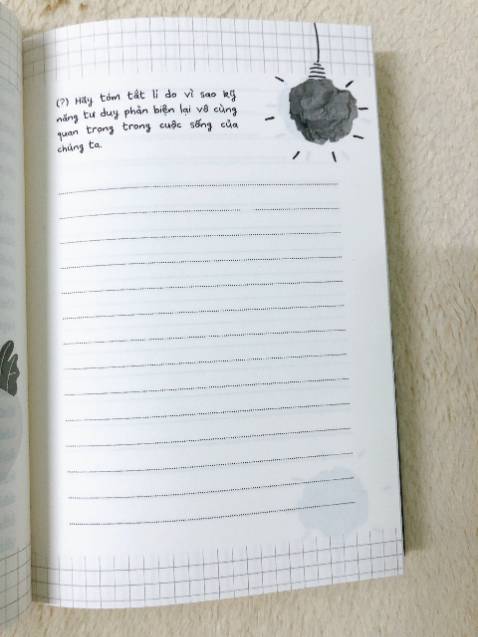 (?) Hãy tóm tắt lí do vì sao kỹ
năng tư duy phản biện lại vô cùng
quan trọng trong cuộc sống của
chúng ta.